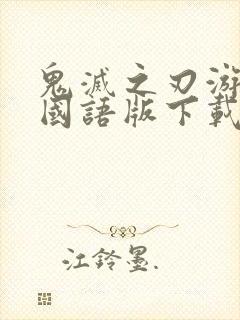 鬼滅之刃游
國語版下載
江鈴墨.